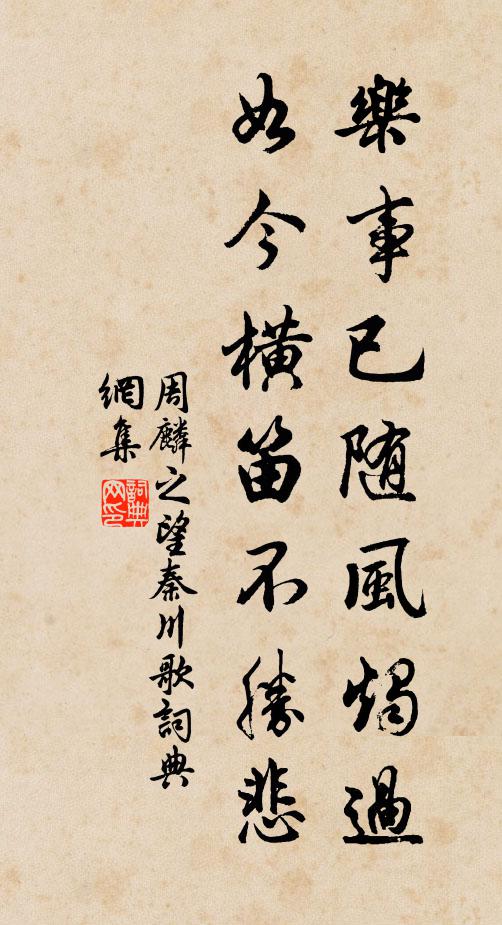 樂事已随風燭過
如今橫笛不勝悲
周麟之望秦川歌詞典
網集
詞典
网印